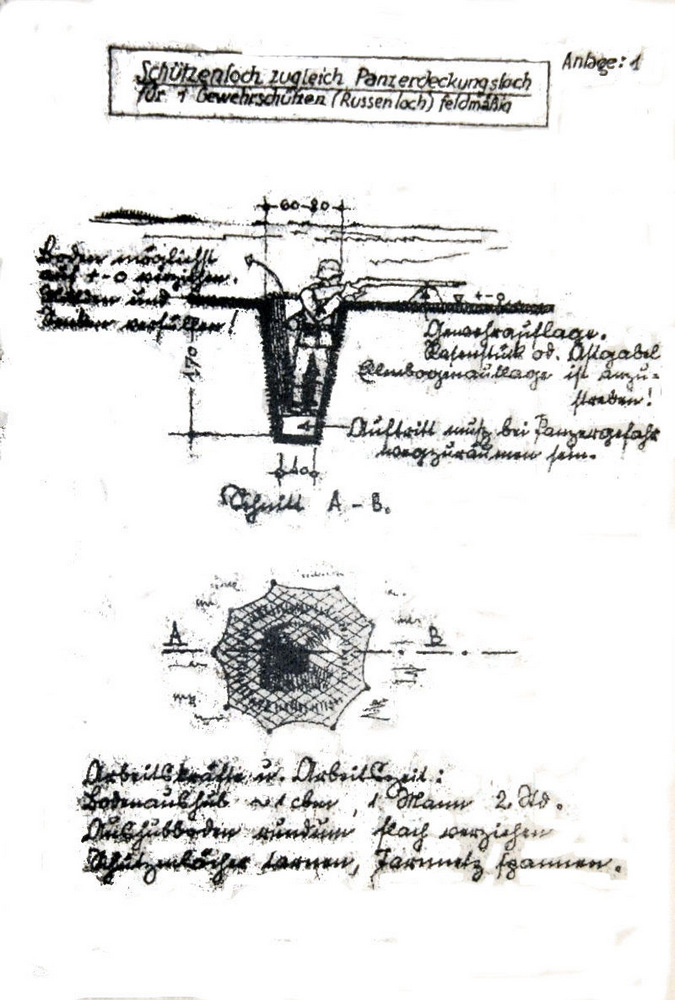 Anlage: 1
Schützenloch zugleich Panzerdeckungsloch
für 1 Gewehrschützen (Russenloch) feldmäßig
60-80
Boden möglichst
auf +-0 verziehen.
und
verfüllen!
+-0
170
Gewehrauflage.
Rasenstück od. Astgabel
Elmbogenauflage ist anzu-
streben!
Auftritt muß bei Panzergefahr
wegzuräumen sein.
40
Schnitt A - B.
A
B
Arbeitskräfte u. Arbeitszeit:
Bodenaushub ~ 1 cbm, 1 Mann 2 Std.
Aushubboden rundum flach verziehen
Schützenlöcher tarnen, Tarnnetz spannen.